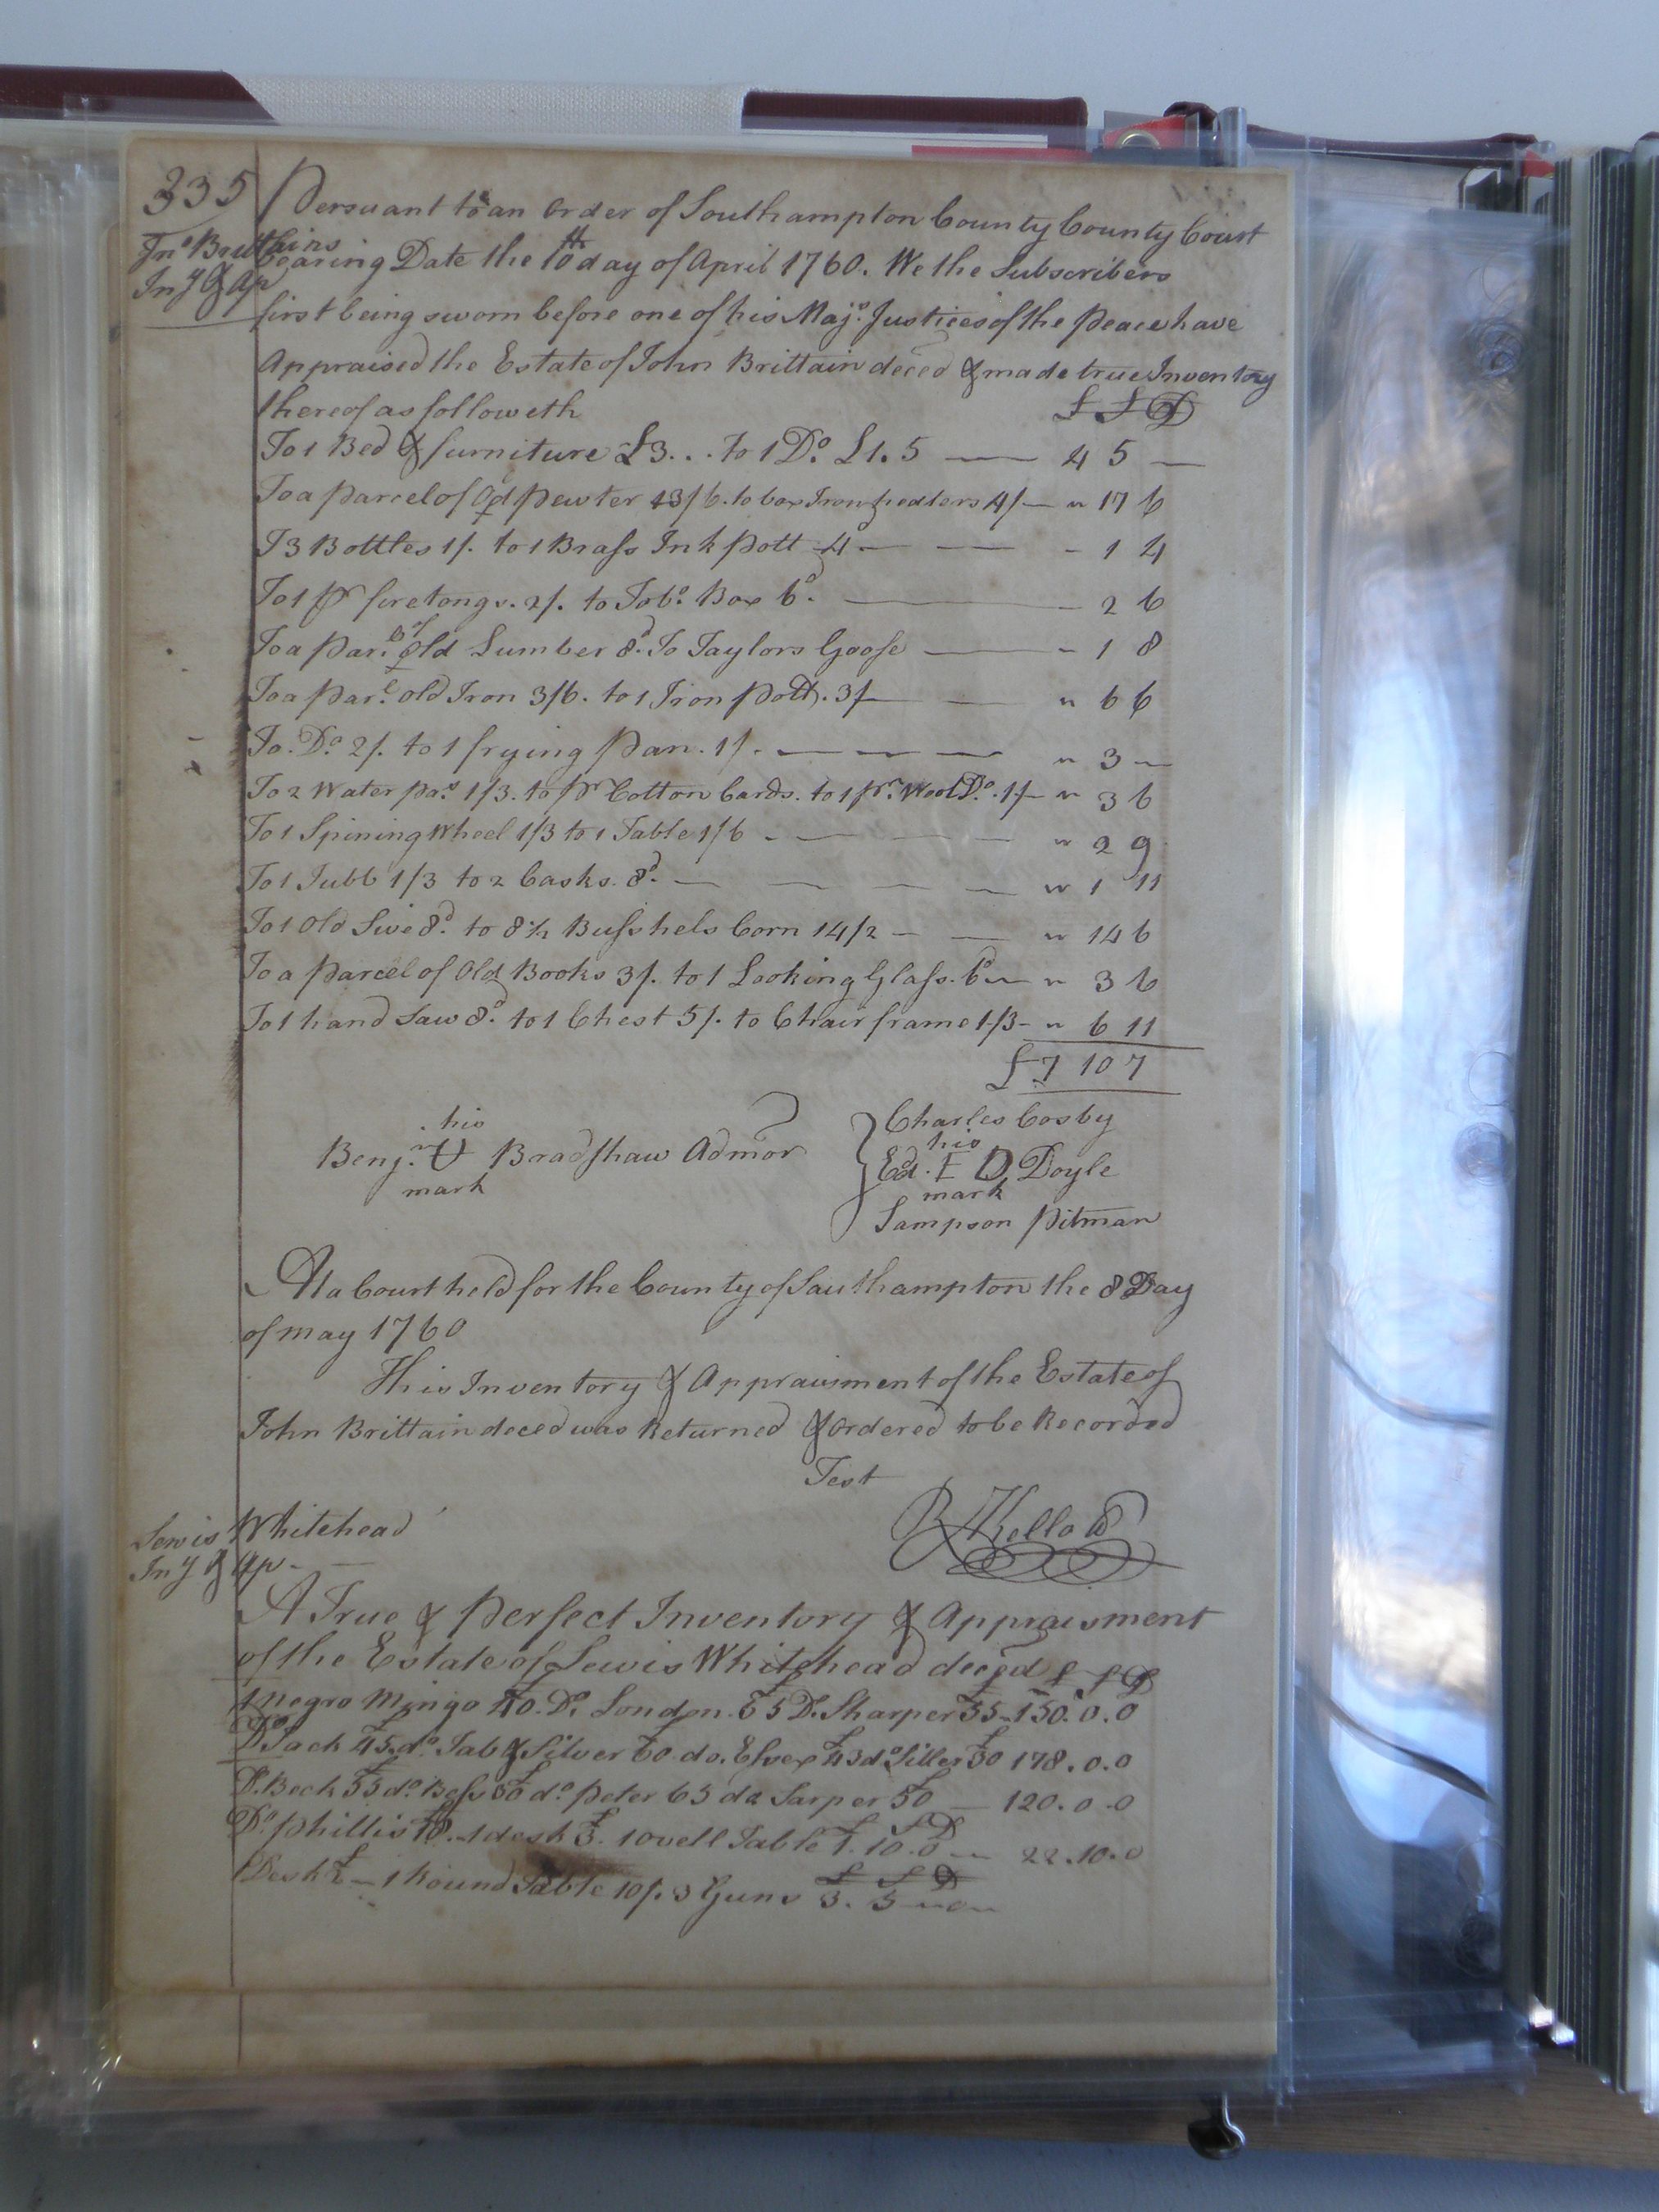 335
Jn.o Brittains
In.y & Ap
Persuant to an Order of Southampton County County Court
bearing Date the 10th day of April 1760. We the Subscribers
first being sworn before one of his Maj.s Justices of the Peace have
Appraised the Estate of John Brittain deced & made true Inventory
thereof as followeth £ S D
To 1 Bed & furniture £3... to 1 D.o £1.5 — 4 5 —
To a Parcel of Old Pewter 13/6. to box Iron heaters 4/— " 17 6
T 3 Bottles 1/. to 1 Brass Ink Pott 4d — — - 1 4
To 1 Pr fire tongs. 2/. to Tob.o Box 6d. — - 2 6
To a Par.l of Old Lumber 8d. To Taylors Goose — - 1 8
To a Par.l old Iron 3/6. to 1 Iron Pott. 3/— — " 6 6
To. D.o 2/. to 1 frying Pan. 1/. — — — " 3 —
To 2 Water Pa.s 1/3. to Pr Cotton Cards. to 1 Pr. Wool D.o. 1/— " 3 6
To 1 Spining Wheel 1/3 to 1 Table 1/6 - — — — " 2 9
To 1 Tubb 1/3 to 2 Casks. 8d. — — — — " 1 11
To 1 Old Sive 8d. to 8 1/2 Busshels Corn 14/2 — — " 14 6
To a Parcel of Old Books 3/. to 1 Looking Glass. 6d — " 3 6
To 1 hand Saw 8d. to 1 Chest 5/. to Chair frame 1/3 - " 6 11
£ 7 10 7
his
Benj.n U Bradshaw Admor
mark
Charles Cosby
his
Ed. E D Doyle
mark
Sampson Pitman
At a Court held for the County of Southampton the 8 Day
of May 1760
This Inventory & Appraisment of the Estate of
John Brittain deced was Returned & Ordered to be Recorded
Test
R Kello
Lewis Whitehead
In.y & Ap. —
A True & Perfect Inventory & Appraisment
of the Estate of Lewis Whitehead deced £ S D
1 Negro Mingo 40. D.o London. 65 D.o Sharper 55 - 150. 0. 0
D.o Jack 45. d.o Tab & Silver 60 do. Essex 43 d.o Siller 30 178. 0. 0
D.o Beck 55 d.o Bess 50 d.o Peter 65 do Sarper 50 — 120. 0. 0
D.o Phillis 18. - 1 desk 3. 1 ovell Table 1. 10. 0 — 22. 10. 0
1 Desk 2 — 1 Round Table 10/. 3 Guns 3. 5